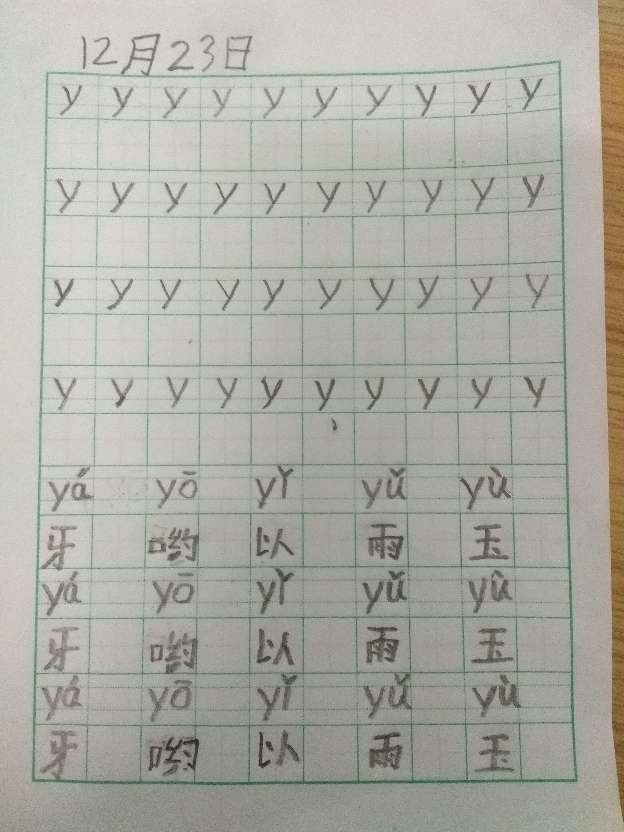 12月23日
y y y y y y y y y y
y y y y y y y y y y
y y y y y y y y y y
y y y y y y y y y y
yá yō yǐ yǔ yù
牙 哟 以 雨 玉
yá yō yǐ yǔ yù
牙 哟 以 雨 玉
yá yō yǐ yǔ yù
牙 哟 以 雨 玉